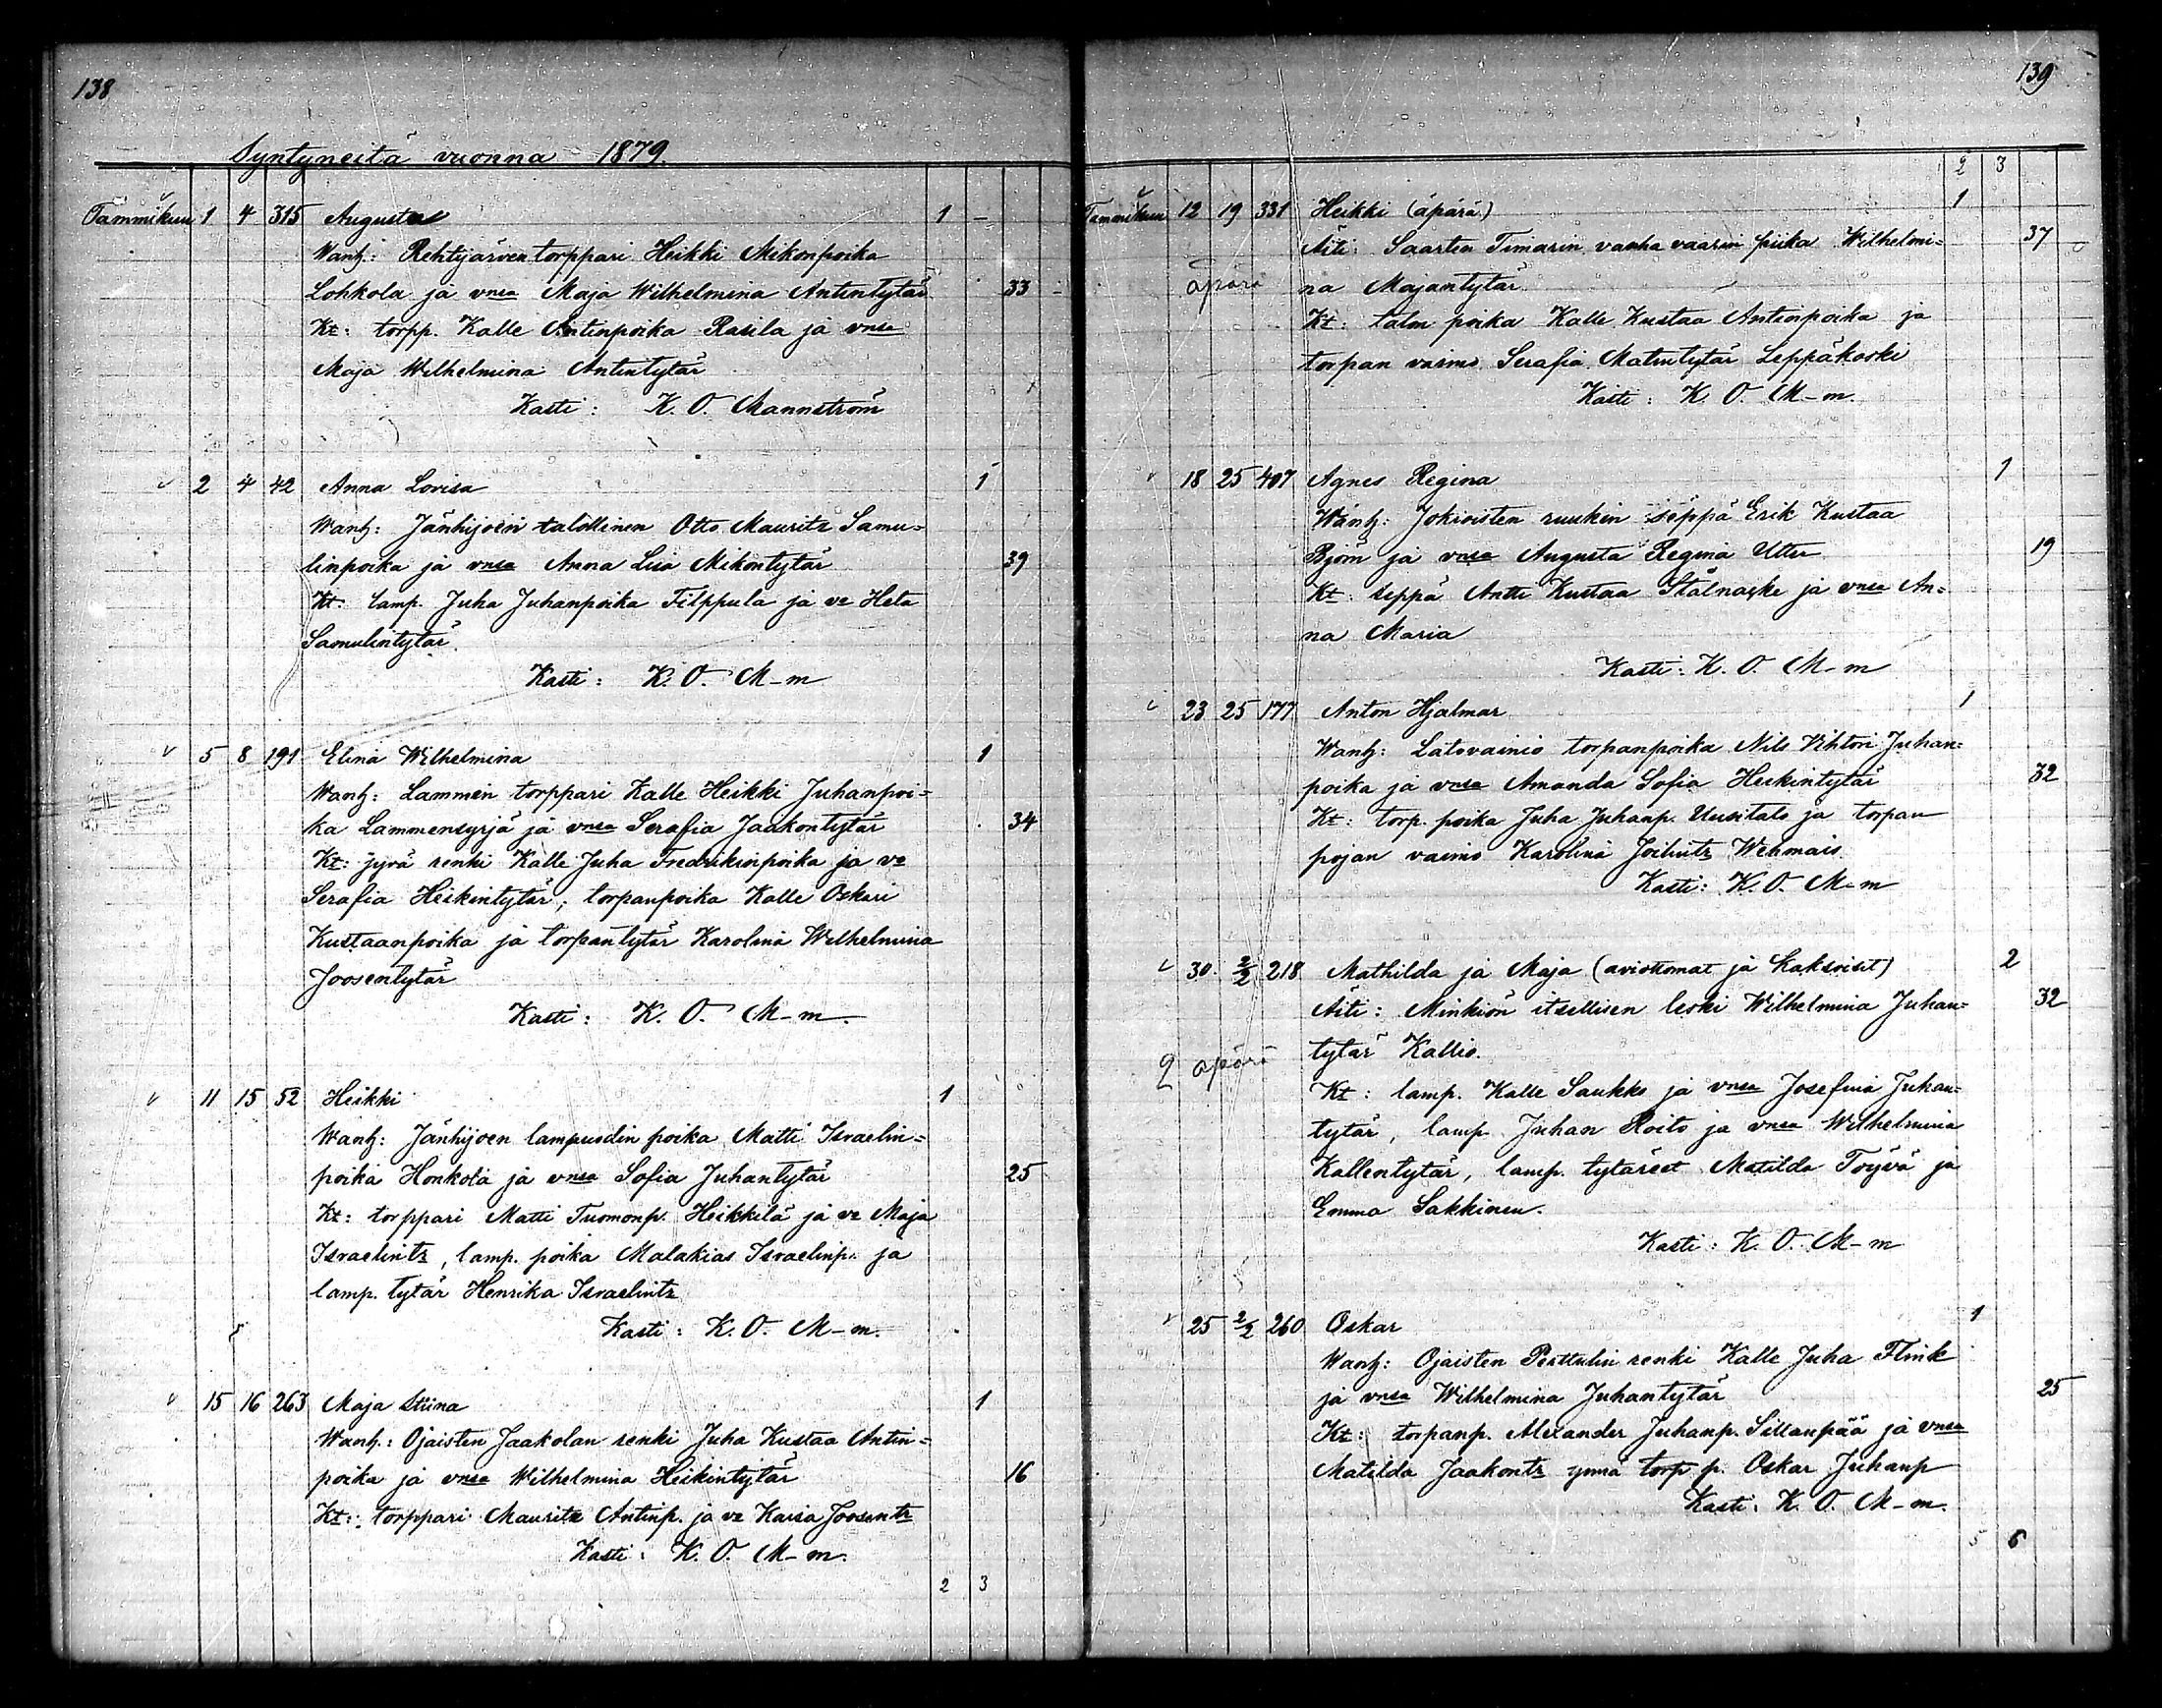 138
Syntyneitä vuonna 1879.
Tammikuu 1 4 315 August 1 -
Wanh.: Rehtijärven torppari Heikki Mikonpoika
Lohkola ja vnsa Maja Wilhelmina Antintytär 33
Kt: torpp. Kalle Antinpoika Rasila ja vnsa
Maja Wilhelmina Antintytär
Kasti: K. O. Mannström
2 4 42 Anna Lovisa 1
Wanh: Jänhijoen talollinen Otto Mauritz Samu=
linpoika ja vnsa Anna Liisa Mikontytär 39
Kt: lamp. Juha Juhanpoika Filppula ja vo Heta
Samulintytär.
Kasti: K. O. M-m
5 8 191 Elina Wilhelmina 1
Wanh: Lammen torppari Kalle Heikki Juhanpoi=
ka Lammensyrjä ja vnsa Serafia Jaakontytär 34
Kt: jyvä renki Kalle Juha Fredrikinpoika ja vo
Serafia Heikintytär; torpanpoika Kalle Oskari
Kustaanpoika ja torpantytär Karolina Wilhelmina
Joosentytär
Kasti: K. O. M-m.
11 15 52 Heikki 1
Wanh: Jänhijoen lampuodin poika Matti Israelin=
poika Honkola ja vnsa Sofia Juhantytär 25
Kt: torppari Matti Tuomonp. Heikkilä ja vo Maja
Israelintr, lamp. poika Malakias Israelinp. ja
lamp. tytär Henrika Israelintr
Kasti: K. O. M-m.
15 16 263 Maja Stiina 1
Wanh.: Ojaisten Jaakolan renki Juha Kustaa Antin=
poika ja vnsa Wilhelmina Heikintytär 16
Kt: torppari Mauritz Antinp. ja vo Kaisa Joosentr
Kasti: K. O. M-m.
2 3
139
2 3
Tammikuu 12 19 331 Heikki (äpärä) 1
Äiti: Saarten Timarin vanha vaarin piika Wilhelmi= 37
äpärä na Majantytär.
Kt: talon poika Kalle Kustaa Antinpoika ja
torpan vaimo Serafia Matintytär Leppäkoski
Kasti: K. O. M-m.
18 25 407 Agnes Regina 1
Wanh: Jokioisten ruukin seppä Erik Kustaa
Björn ja vnsa Augusta Regina Utter 19
Kt: seppä Antti Kustaa Stålnacke ja vnsa An=
na Maria
Kasti: K. O. M-m
23 25 177 Anton Hjalmar 1
Wanh: Latovainio torpanpoika Nils Vihtori Juhan=
poika ja vnsa Amanda Sofia Heikintytär 32
Kt: torp. poika Juha Juhanp. Uusitalo ja torpan
pojan vaimo Karolina Wehmais.
Kasti: K. O. M-m
30. 2/2 218 Mathilda ja Maja (aviottomat ja kaksoiset) 2
Äiti: Minkiön itsellisen leski Wilhelmina Juhan= 32
2 äpärä tytär Kallio.
Kt: lamp. Kalle Saukko ja vnsa Josefina Juhan=
tytär, lamp. Juhan Roito ja vnsa Wilhelmina
Kallentytär, lamp. tytäret Matilda Töyvä ja
Emma Sakkinen.
Kasti: K. O. M-m
25 2/2 260 Oskar 1
Wanh: Ojaisten Perttulin renki Kalle Juha Flink
ja vnsa Wilhelmina Juhantytär 25
Kt: torpanp. Alexander Juhanp. Sillanpää ja vnsa
Matilda Jaakontr ynnä torp. p. Oskar Juhanp
Kasti: K. O. M-m.
5 6